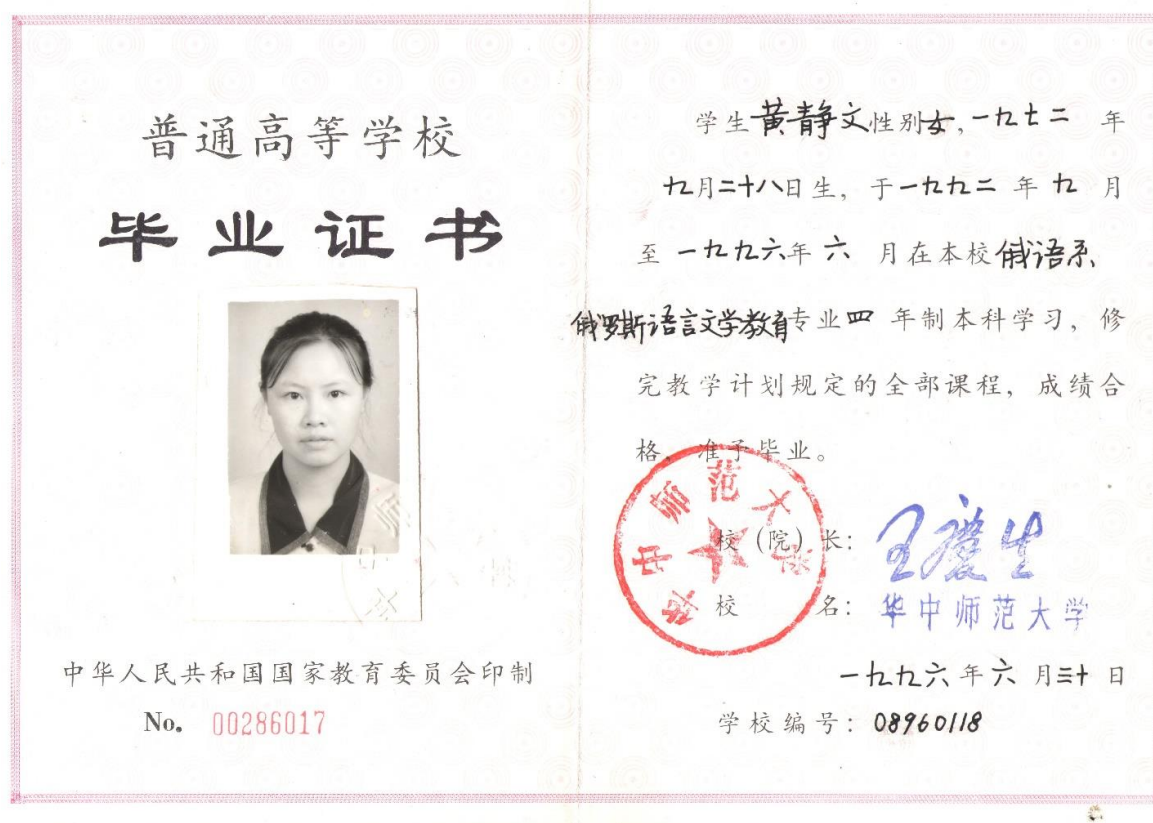 普通高等学校
毕业证书
中华人民共和国国家教育委员会印制
No. 00286017
学生黄静文性别女,一九七二 年
九月二十八日生, 于一九九二 年 九 月
至 一九九六年 六 月在本校俄语系
俄罗斯语言文学教育专业四 年制本科学习, 修
完教学计划规定的全部课程, 成绩合
格, 准予毕业。
校(院)长: 王庆生
校 名: 华中师范大学
华中师范大学
一九九六年六月三十日
学校编号: 08960118